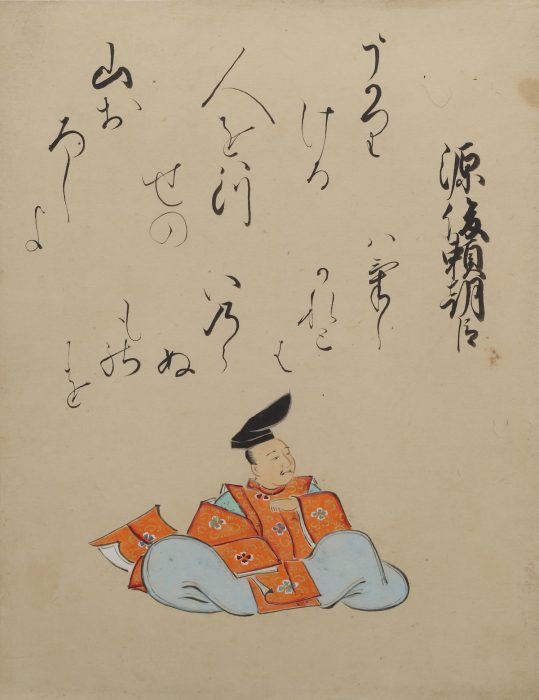 源俊頼朝臣
うかり
ける
人をはつ
せの
山お
ろしよ
はけし
かれと
は
いのら
ぬ
もの
を